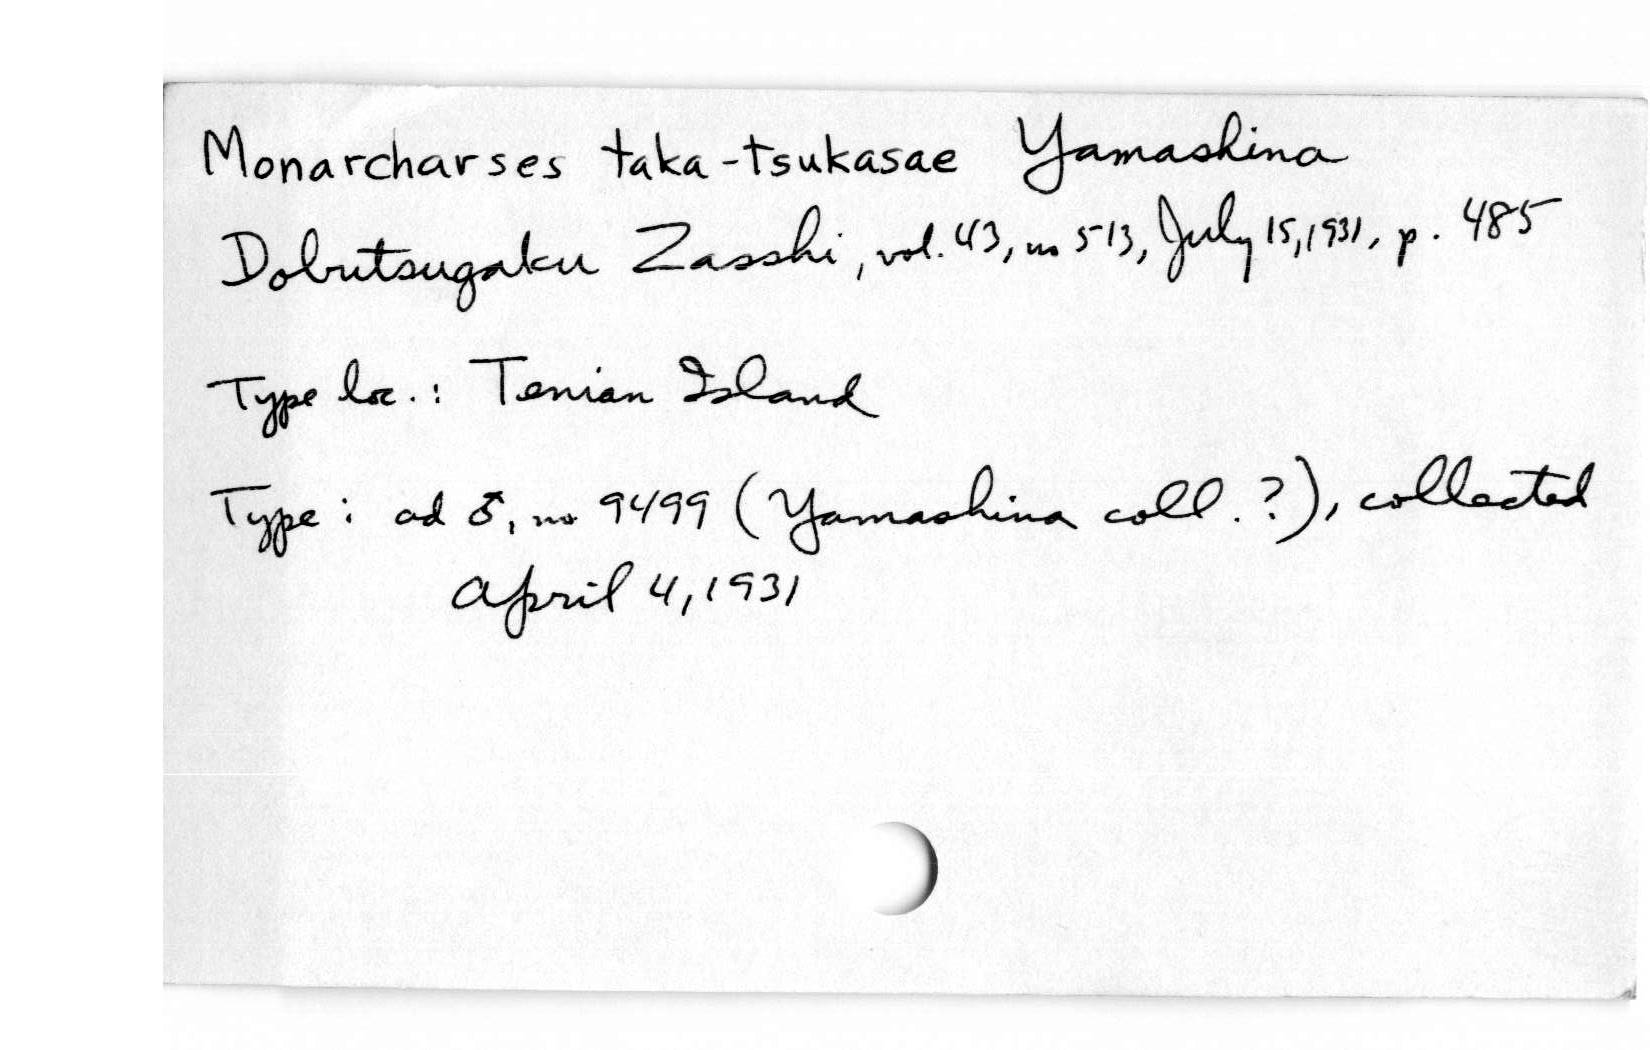 Monarcharses taka-tsukasae Yamashina
Dobutsugaku Zasshi, vol. 43, no 513, July 15, 1931, p. 485
Type loc.: Tenian Island
Type: ad ♂, no 9499 (Yamashina coll.?), collected
April 4, 1931